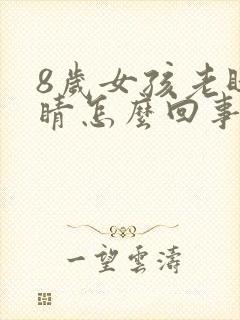 8歲女孩老
睛怎麼回事
一望雲濤